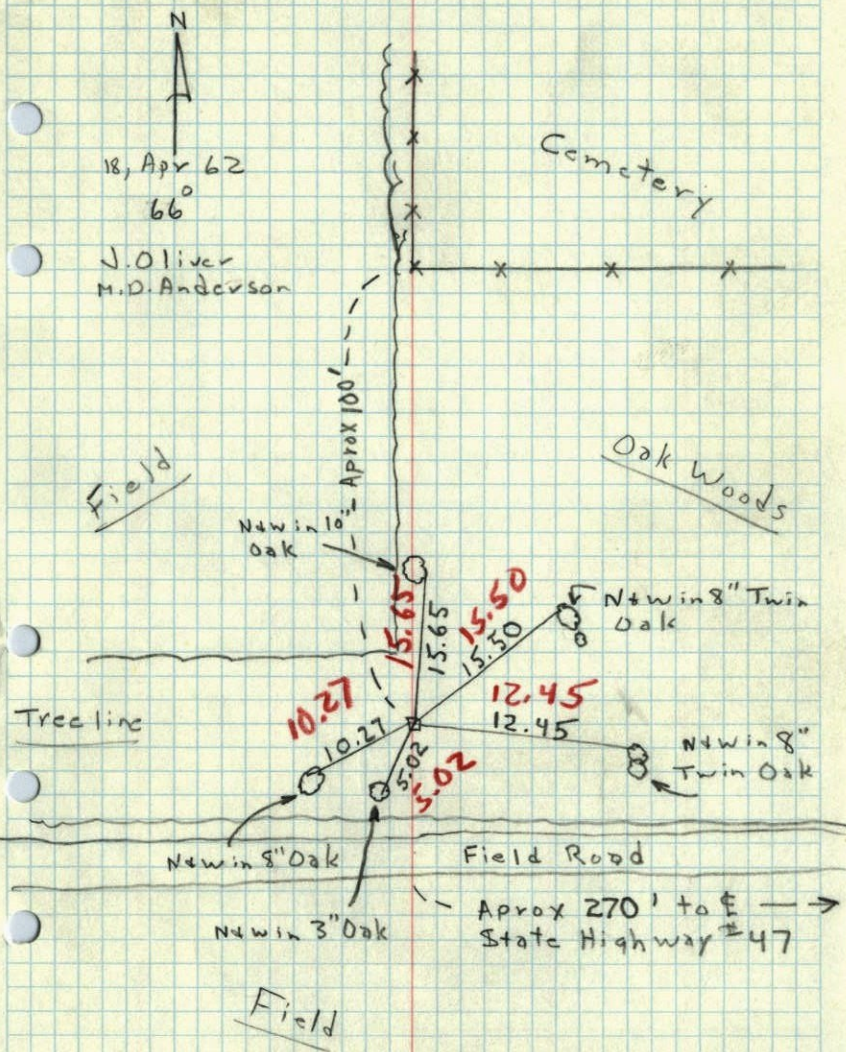 N
18, Apr 62
66°
J. Oliver
M.D. Anderson
Cemetery
Aprox 100'
Field
Oak Woods
N&W in 10" Oak
15.65
15.65
15.50
15.50
N&W in 8" Twin
Oak
10.27
10.27
12.45
12.45
Tree line
5.02
5.02
N&W in 8"
Twin Oak
N&W in 8" Oak
Field Road
N&W in 3" Oak
Aprox 270' to ℄
State Highway #47
Field